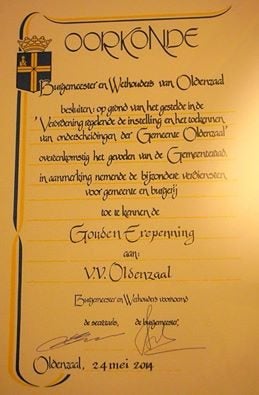 OORKONDE
Burgemeester en Wethouders van Oldenzaal
besluiten: op grond van het gestelde in de
"Verordening regelende de instelling en het toekennen
van onderscheidingen der Gemeente Oldenzaal"
overeenkomstig het gevoelen van de Gemeenteraad,
in aanmerking nemende de bijzondere verdiensten
voor gemeente en burgerij
toe te kennen de
Gouden Erepenning
aan:
V.V. Oldenzaal
Burgemeester en Wethouders voornoemd
de secretaris, de burgemeester,
Oldenzaal, 24 mei 2014